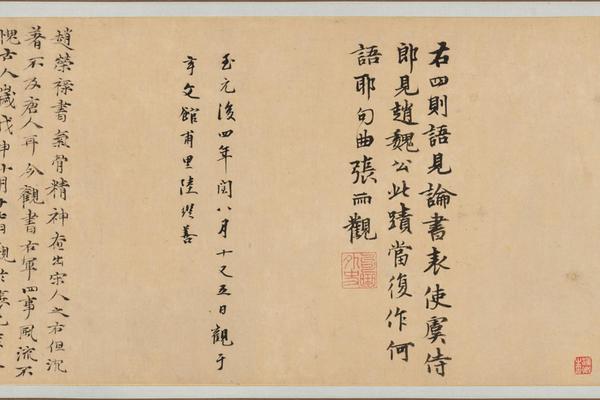 右四則語見論書表使虞侍
郎見趙魏公此蹟當復作何
語耶句曲張雨觀
至元後四年閏八月十又五日觀于
玄文館甫里陸継善
趙榮祿書氣骨精神杳出宋人之右但沉
著不及唐人耳今觀書右軍四事風流不
愧古人歲戊申月廿七日觀於